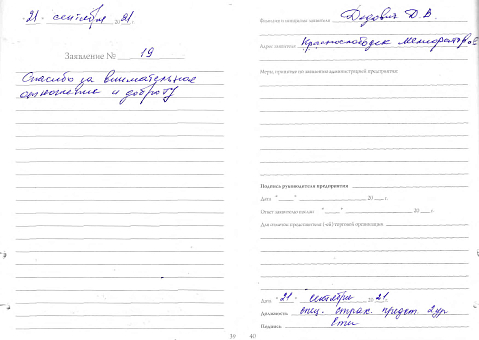 "21" сентября 2021.
Заявление № 19
Спасибо за внимательное
отношение и доброту
39
Фамилия и инициалы заявителя Дедович Д.В.
Адрес заявителя Краснослободск
Меры, принятые по заявлению администрацией предприятия:
Подпись руководителя предприятия
Дата "___" ______ 20___ г.
Ответ заявителю послан "___" ______ 20___ г.
Для отметок представителя (-ей) торговой организации
Дата "21" сентября 2021.
Должность спец. страх. предст
Подпись
40